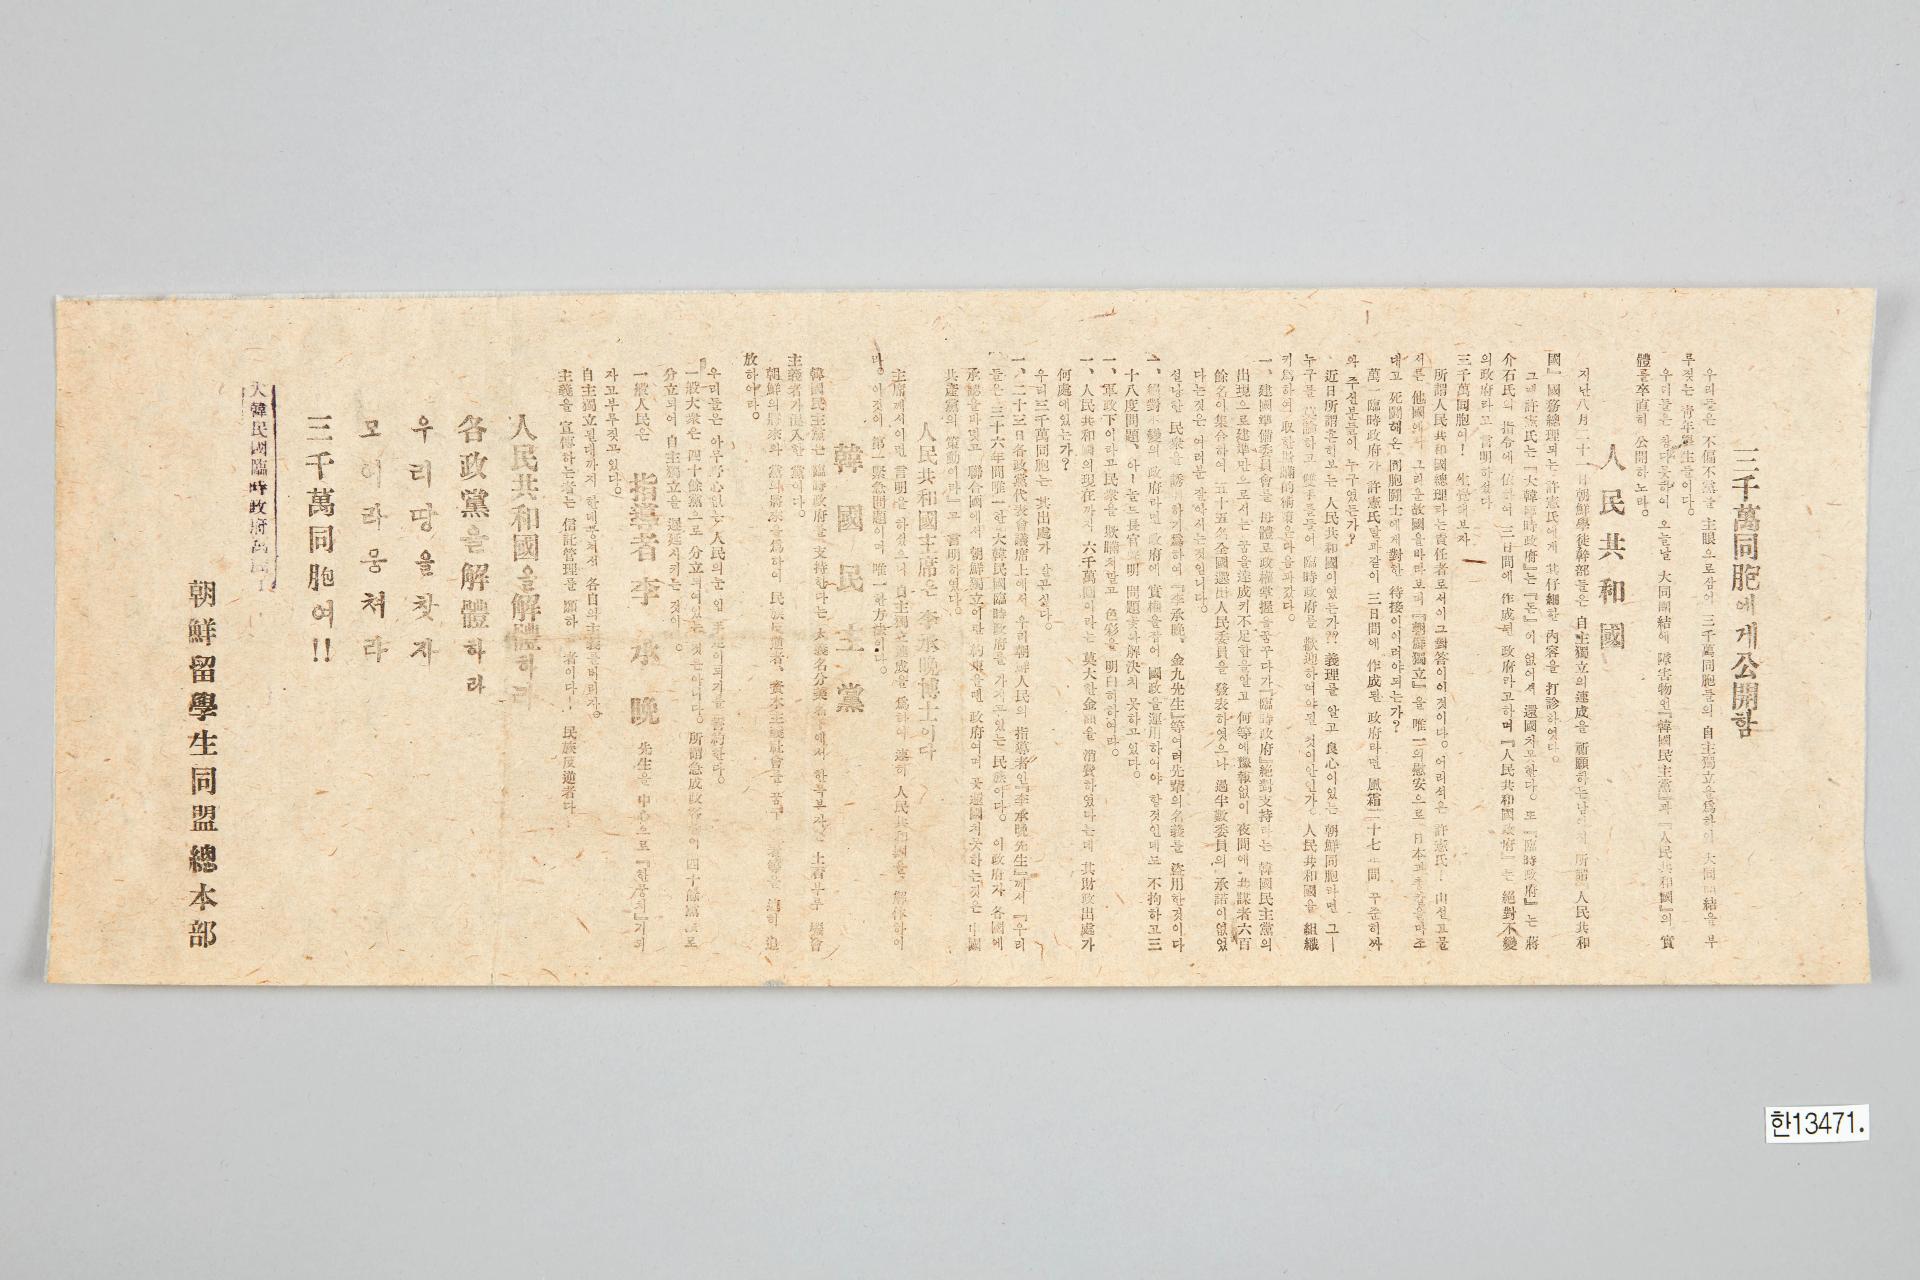 三千萬同胞에게公開함
우리들은 不偏不黨을 主眼으로삼어 三千萬同胞들의 自主獨立을爲하야 大同團結을 부
루짖는 靑年學生들이다。
우리들은 참다못하야 오늘날 大同團結에 障害物인『韓國民主黨』과『人民共和國』의 實
體를 卒直히 公開하노라。
人民共和國
지난八月二十一日朝鮮學徒幹部들은 自主獨立의 達成을 祈願하는남어지 所謂『人民共和
國』國務總理되는 許憲氏에게 其仔細한 內容을 打診하엿다。
그때許憲氏는『大韓臨時政府』는『돈』이 없어서 還國치못한다。또『臨時政府』는 蔣
介石氏의 指令에 依하여 三日間에 作成된 政府라고하며『人民共和國政府』는 絕對不變
의政府라고 言明하섯다
三千萬同胞여! 生覺해보자
所謂人民共和國總理라는責任者로서이그對答이이것이다。어리석은 許憲氏!
서른 他國에서 그리운故國을바라보며『朝鮮獨立』을 唯一의慰安으로 日本과
대고 死鬪해온 同胞鬪士에게對한 待接이이러야되는가?
萬一臨時政府가 許憲氏말과같이 三日間에 作成된 政府라면 風霜二十七年間 꾸준히싸
와 주신분들이 누구였든가?
近日所謂 人民共和國이였든가?? 義理를 알고 良心이있는 朝鮮同胞라면 그—
누구를 勿論하고 雙手를들여 臨時政府를 歡迎하여야될 것이안인가。人民共和國을 組織
키爲하여
一、建國準備委員會를 母體로政權掌握을꿈꾸다가『臨時政府』絕對支持라는 韓國民主黨의
出現으로建準만으로서는 꿈을達成키不足함을알고 何等에豫報없이 夜間에 共謀者六百
餘名이集合하여 五十五名全國選出人民委員을 發表하엿으나 過半數委員의 承諾이없었
다는것은 여러분 잘아시는것입니다。
선량한 民衆을 誘引하기爲하여『李承晩、金九先生』等여러先輩의名義를 盜用한것이다
一、絕對不變의 政府라면 政府에 實權을잡어 國政을運用하여야 할것인데도 不拘하고三
十八度問題、아—놀드長官聲明 問題좃차解決치 못하고있다。
一、軍政下이라고民衆을 欺瞞치말고 色彩을 明白히하여라。
一、人民共和國의現在까지 六千萬圓이라는 莫大한金額을 消費하였다는데 其財政出處가
何處에있는가?
우리三千萬同胞는 其出處가 알고싶다。
一、二十三日各政黨代表會議席上에서 우리朝鮮人民의 指導者인『李承晩先生』께서『우리
들은 三十六年間唯一한大韓民國臨時政府를 가지고있는 民族이다。이政府가 各國에
承認을바더고 聯合國에서 朝鮮獨立이란 約束을맨 政府여며 곳還國치못하는것은 中國
共產黨의 策動이라』고 言明하엿다。
人民共和國主席은 李承晩博士이다
主席께서이런 言明을 하섯으니 自主獨立達成을 爲하여 速히 人民共和國을 解体하여
라。이것이 第一緊急問題이며 唯一한方法이다。
韓國民主黨
韓國民主黨은 臨時政府를 支持한다는 大義名分美名下에서 한목보자는 土着부루 機會
主義者가混入한 黨이다。
朝鮮의將來와 黨의將來를爲하여 民族反逆者、資本主義社會를 꿈꾸는 速히 追
放하여라。
우리들은 아무野心없는 人民의눈입귀손이되기를 誓約한다。
一般大衆은 四十餘黨으로 分立되여있는 것은아니다。所謂急成政客들이 四十餘黨으로
分立되여 自主獨立을 遲延시키는 것이다。
一般人民은 指導者 李承晩 先生을 中心으로『한뭉치』가되
자고부루짖고있다。
自主獨立될때까지 한데뭉처서 各自의主義를버리자。
主義을 宣傳하는者는 信託管理를 願하는者이다! 民族反逆者다!
人民共和國을解體하라
各政黨은解體하라
우리땅을찾자
모이라웅쳐라
三千萬同胞여!!
大韓民國臨時政府萬歲!
朝鮮留學生同盟總本部
한13471.